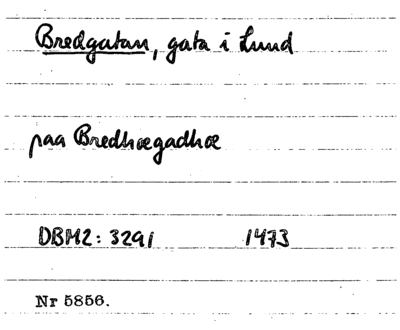 Bredgatan, gata i Lund
paa Bredhœgadhœ
DBM2: 3291 1473
Nr 5856.